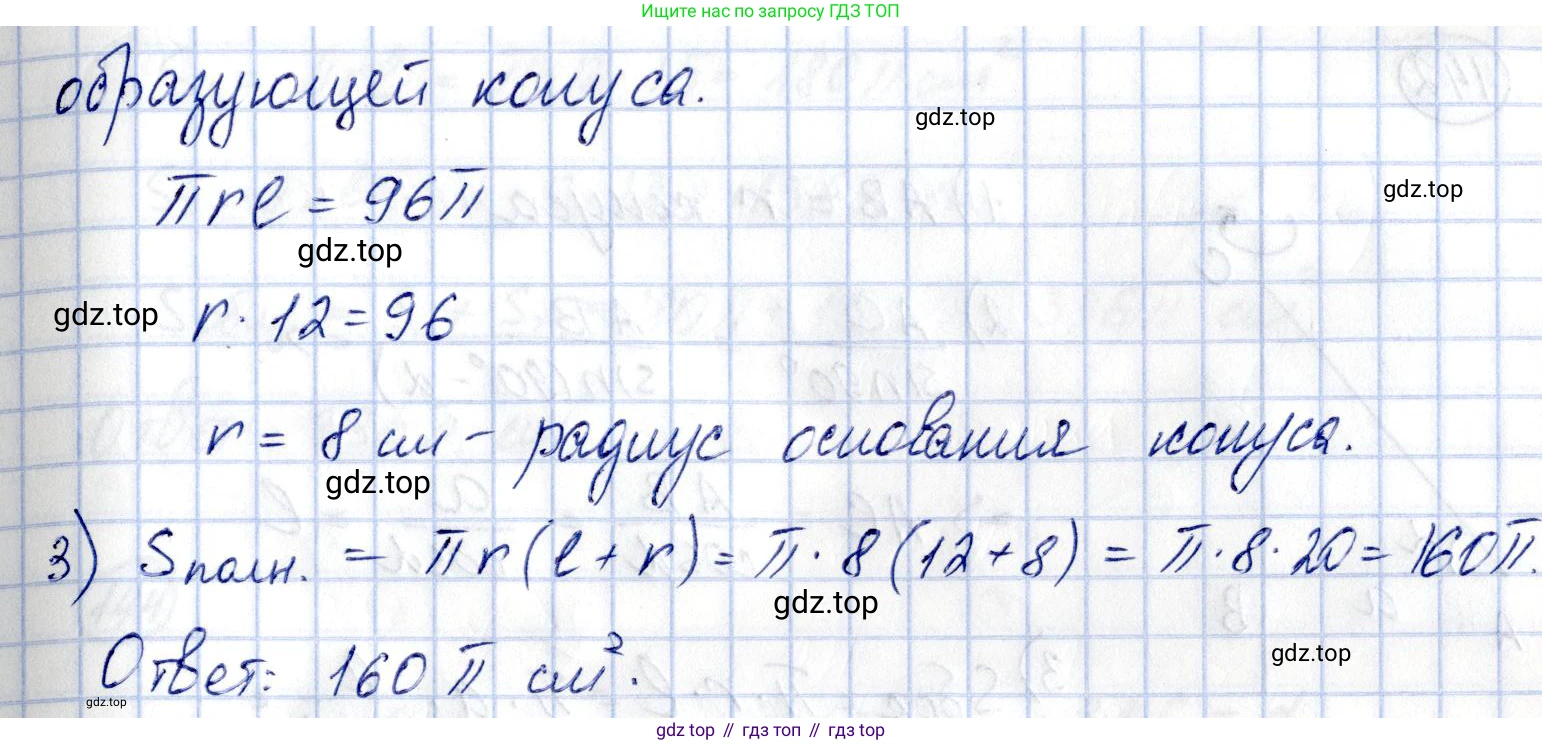 Ищите нас по запросу ГДЗ ТОП
образующей конуса.
gdz.top
πrl = 96π
gdz.top
gdz.top
gdz.top r · 12 = 96
r = 8 см – радиус основания конуса.
gdz.top
3) Sполн. = πr(l + r) = π · 8(12 + 8) = π · 8 · 20 = 160π.
gdz.top
Ответ: 160π см².
gdz.top
gdz.top
gdz top // гдз топ // гдз top